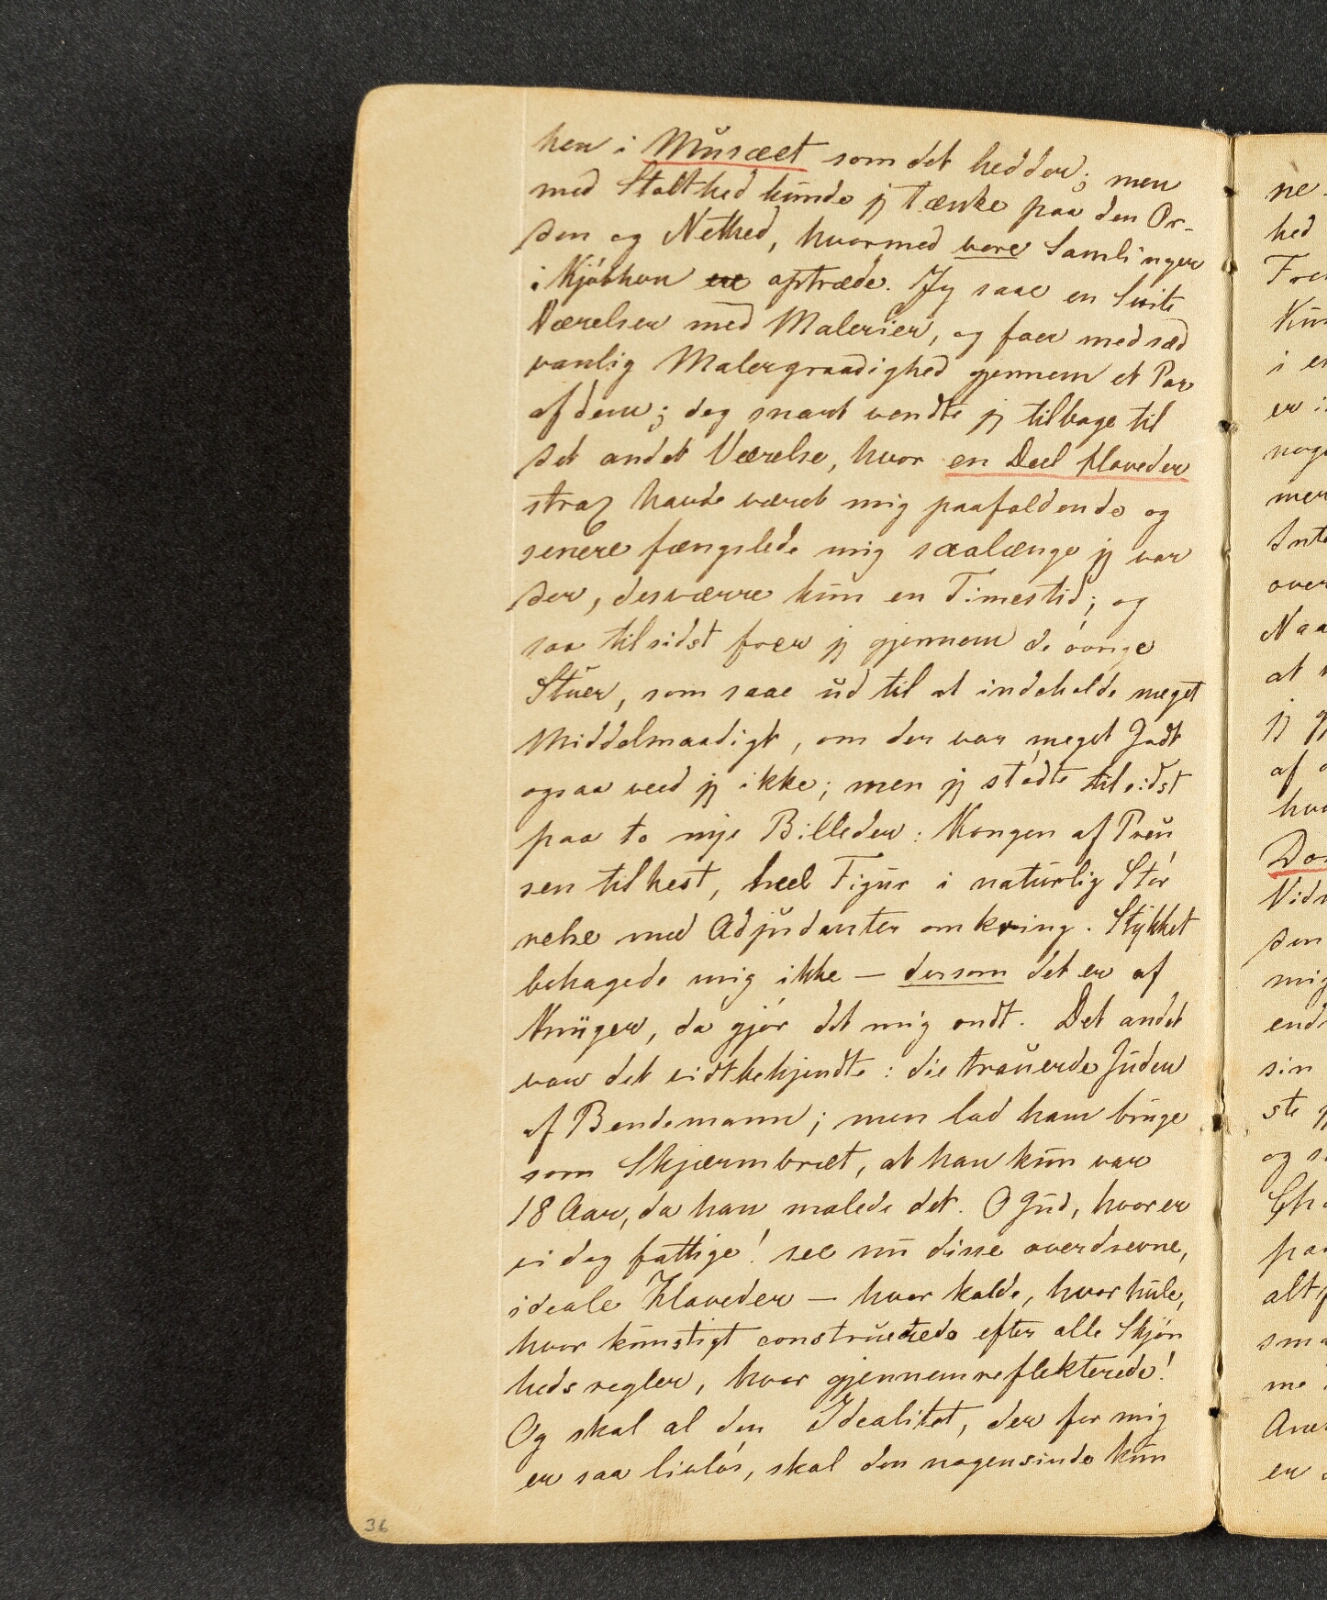 hen i Musæet som det hedder; men
med Stolthed kunde jg tænke paa den Or-
den og Nethed, hvormed vore Samlinger
i Kjöbhvn ere optræde. Jeg saae en Suite
Værelser med Malerier, og foer med sæd
vanlig Malergraadighed gjennem et Par
af dem; dog snart vendte jg tilbage til
det andet Værelse, hvor en Deel Hoveder
strax havde været mig paafaldende og
senere fængslede mig saalænge jg var
der, desværre kun en Timestid; og
saa tilsidst foer jg gjennem de övrige
Stuer, som saae ud til at indeholde meget
Middelmaadigt, om der var meget Godt
ogsaa veed jg ikke; men jg stödte tilsidst
paa to nye Billeder: Kongen af Preu
sen tilhest, heel Figur i naturlig Stör
relse med Adjudanter omkring. Stykket
behagede mig ikke — dersom det er af
Krüger, da gjör det mig ondt. Det andet
var det vidtbekjendte: die trauernde Juden
af Bendemann; men lad ham bruge
som Skjærmbræt, at han kun var
18 Aar, da han malede det. O Gud, hvor er
vi dog fattige! see nu disse averdsevne,
ideale Hoveder — hvor kolde, hvor hule,
hvor kunstigt construerede efter alle Skjön
hedsregler, hvor gjennemreflekterede!
Og skal al den Idealitet, der for mig
er saa livlös, skal den nogensinde kun
36
ne
hed
i
er
af
Do
mig
sin
og
er